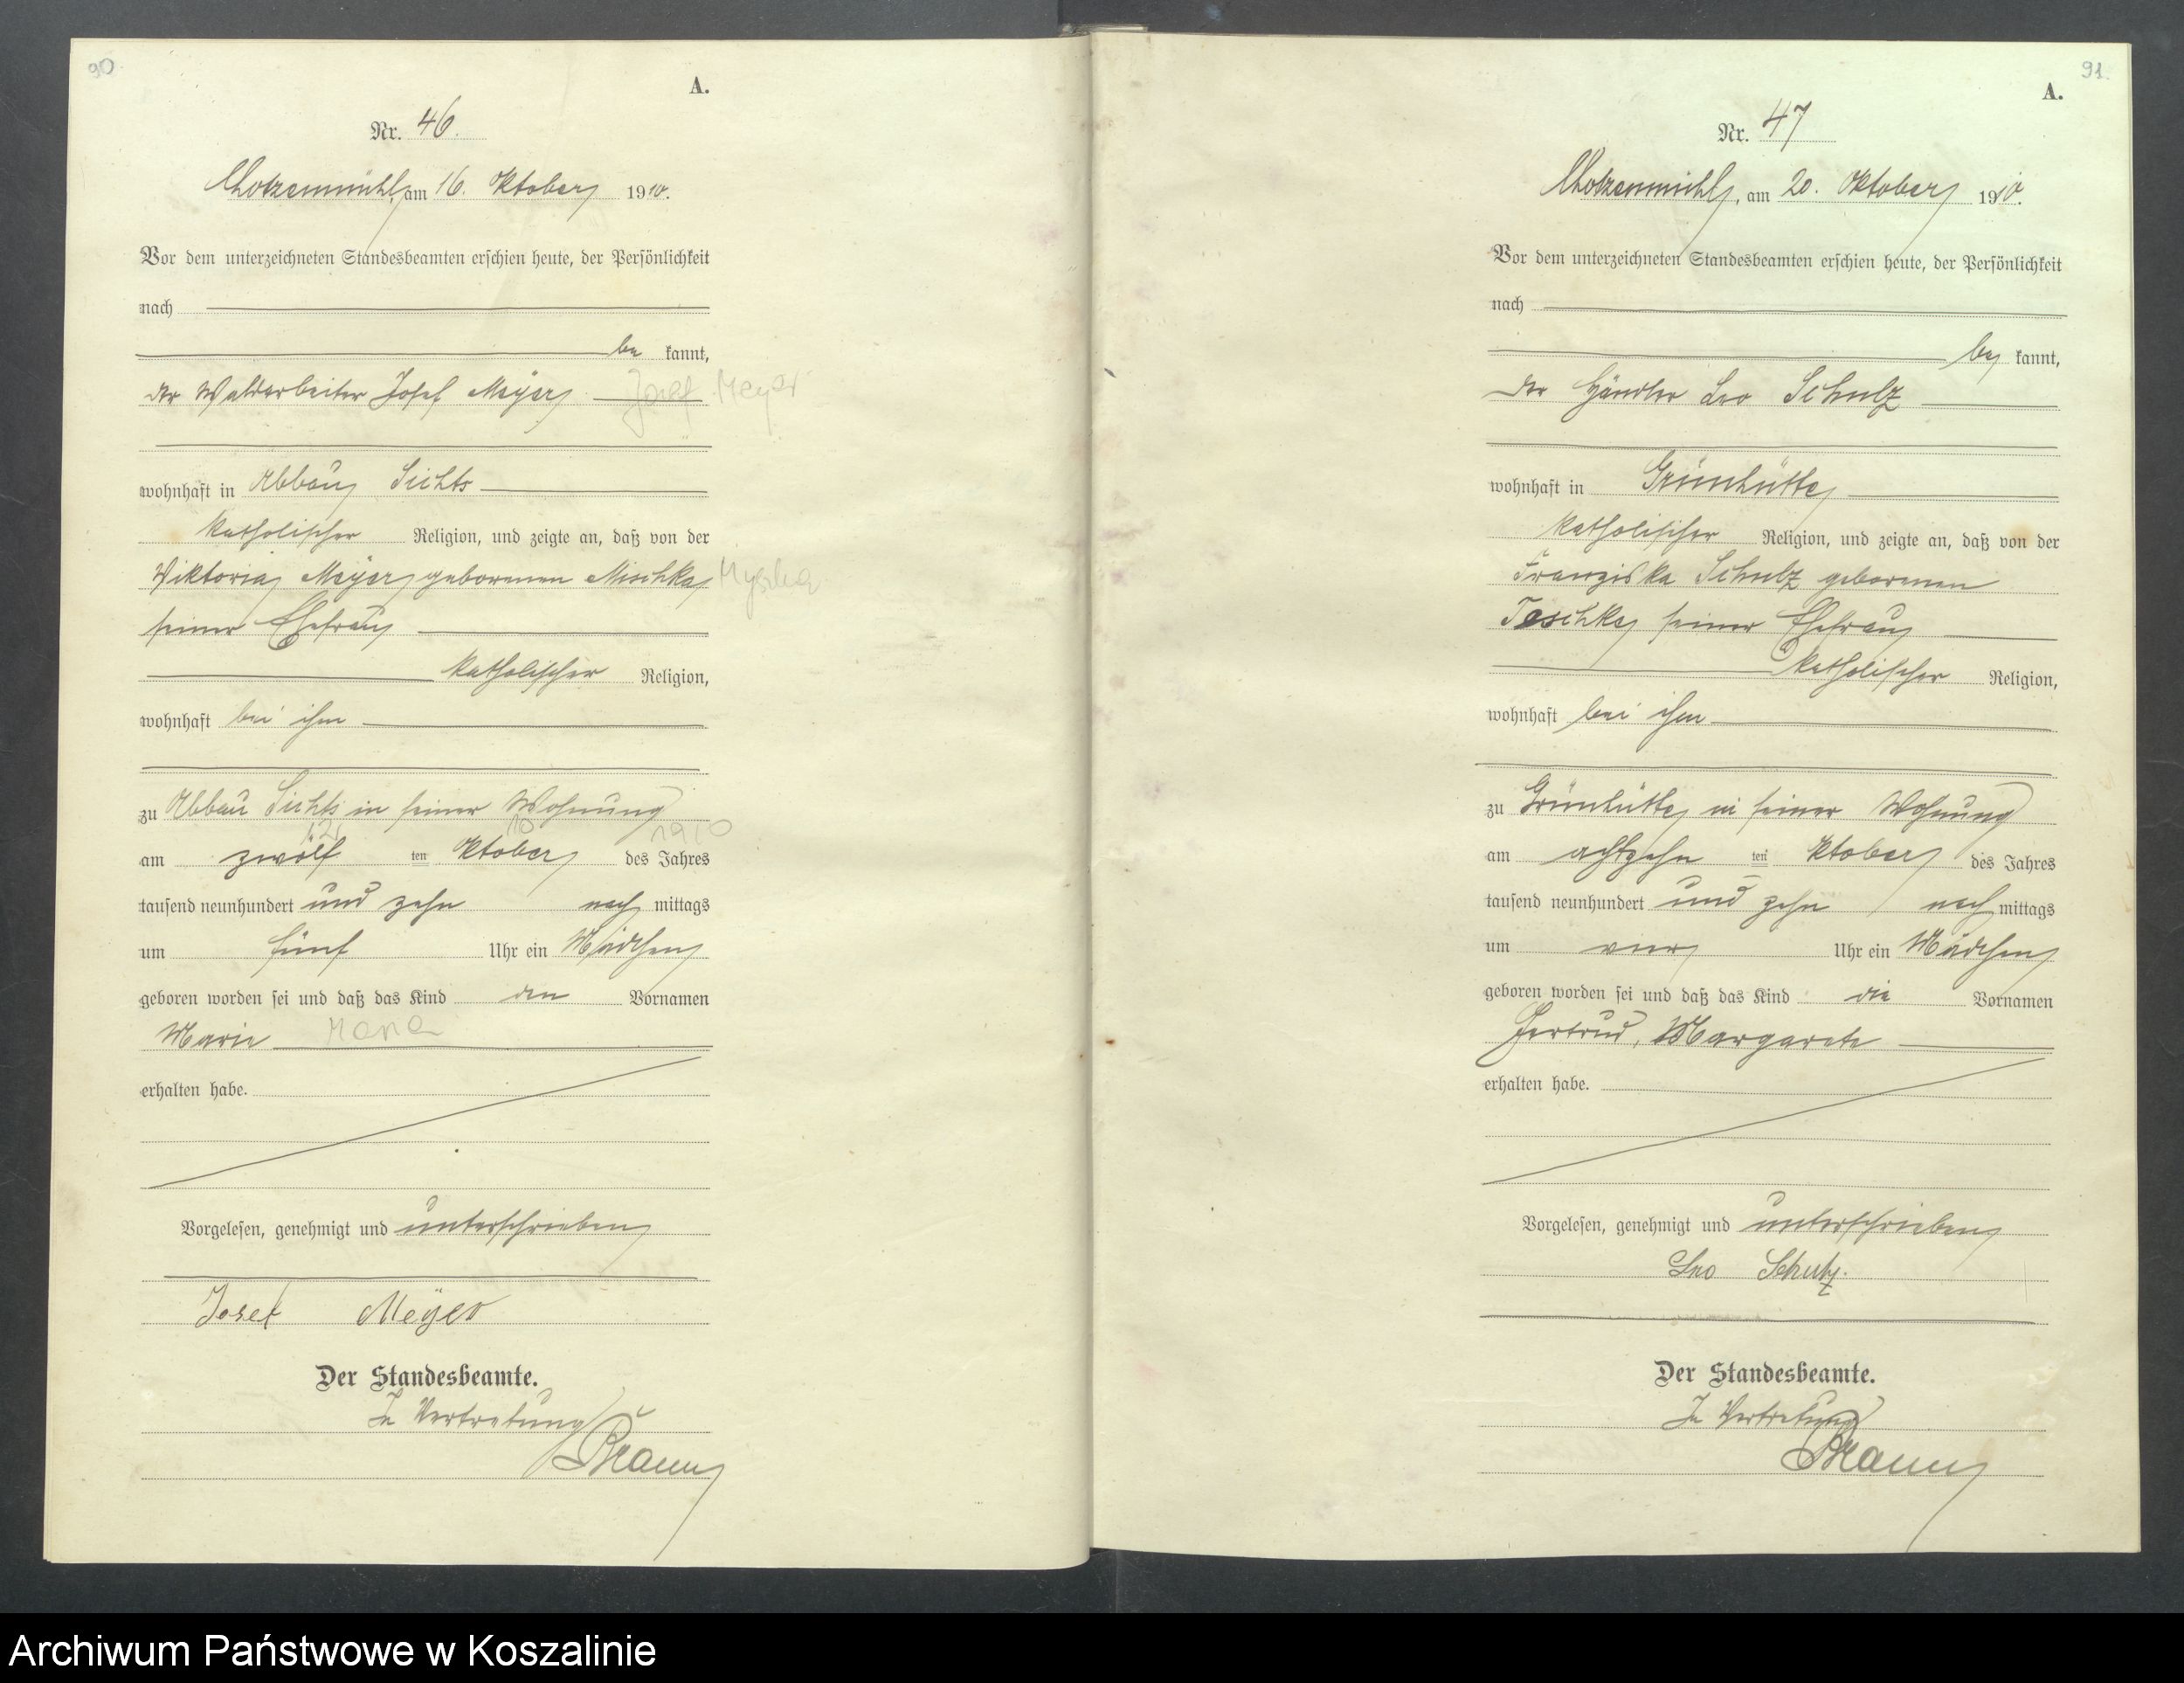 90.
A.
Nr. 46.
Chotzenmühl, am 16. Oktober 1910.
Vor dem unterzeichneten Standesbeamten erschien heute, der Persönlichkeit
nach
be kannt,
der Waldarbeiter Josef Meyer Josef Meyer
wohnhaft in Abbau Sichts
katholischer Religion, und zeigte an, daß von der
Wiktoria Meyer geborenen Mischka Myszka
seiner Ehefrau
katholischer Religion,
wohnhaft bei ihm
zu Abbau Sichts in seiner Wohnung
12 10 1910
am zwölf ten Oktober des Jahres
tausend neunhundert und zehn nach mittags
um fünf Uhr ein Mädchen
geboren worden sei und daß das Kind den Vornamen
Marie Maria
erhalten habe.
Vorgelesen, genehmigt und unterschrieben
Josef Meyer
Der Standesbeamte.
In Vertretung
Braun
91.
A.
Nr. 47
Chotzenmühl, am 20. Oktober 1910.
Vor dem unterzeichneten Standesbeamten erschien heute, der Persönlichkeit
nach
be kannt,
der Händler Leo Schulz
wohnhaft in Grünhütte
katholischer Religion, und zeigte an, daß von der
Franziska Schulz geborenen
Teschke seiner Ehefrau
katholischer Religion,
wohnhaft bei ihm
zu Grünhütte in seiner Wohnung
am achtzehn ten Oktober des Jahres
tausend neunhundert und zehn nach mittags
um vier Uhr ein Mädchen
geboren worden sei und daß das Kind die Vornamen
Gertrud, Margarete
erhalten habe.
Vorgelesen, genehmigt und unterschrieben
Leo Schulz.
Der Standesbeamte.
In Vertretung
Braun
Archiwum Państwowe w Koszalinie